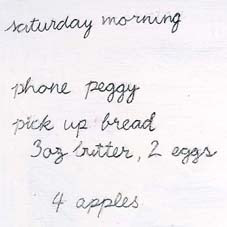 saturday morning
phone peggy
pick up bread
3oz butter, 2 eggs
4 apples